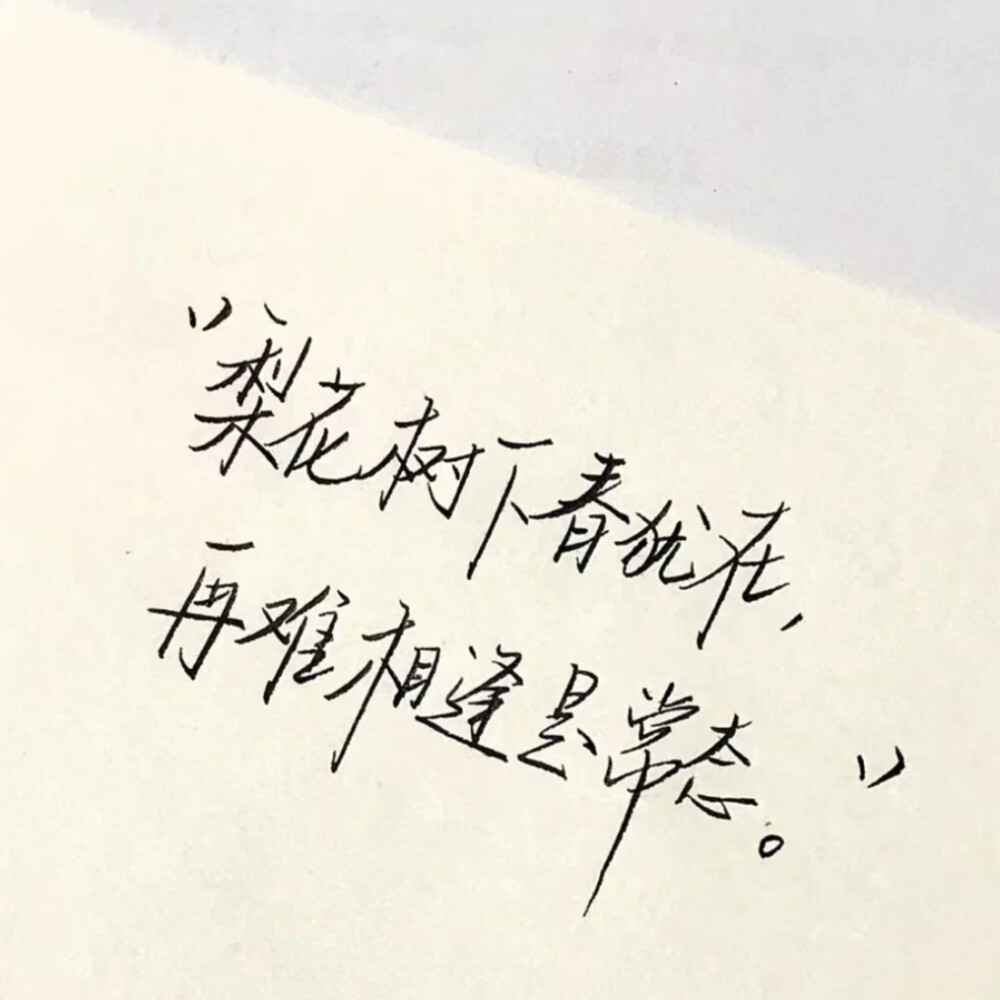 "梨花树下春犹在,
再难相逢是常态。"